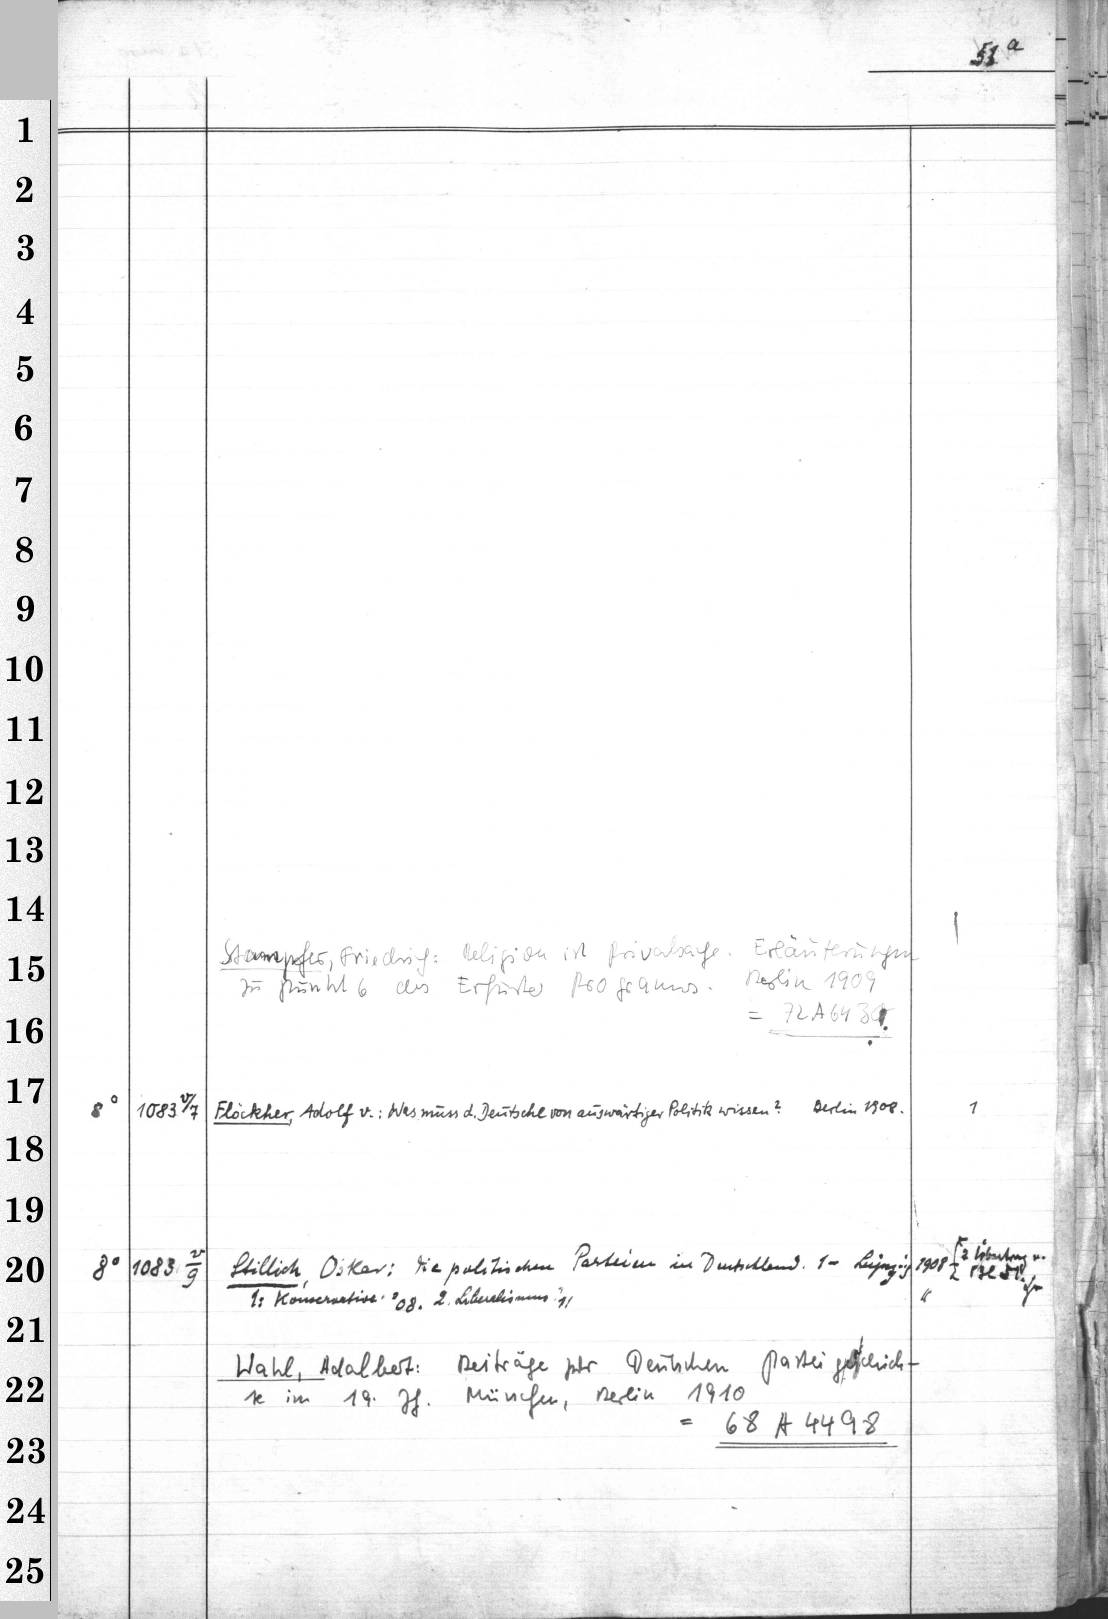 51 a
1
2
3
4
5
6
7
8
9
10
11
12
13
14
15
16
17
18
19
20
21
22
23
24
25
Stampfer, Friedrich: Religion ist Privatsache. Erläuterungen
zu Punkt 6 des Erfurter Programms. Berlin 1909
= 72 A 643
8° 1083 v/7 Flöckher, Adolf v.: Was muss d. Deutsche von auswärtiger Politik wissen? Berlin 1908. 1
8° 1083 v/9 Stillich, Oskar: Die politischen Parteien in Deutschland. 1- Leipzig 1908
1: Konservative. '08. 2. Liberalismus '11 "
Wahl, Adalbert: Beiträge zur Deutschen Parteigeschich-
te im 19. Jh. München, Berlin 1910
= 68 A 4498